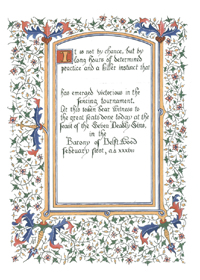 It is not by chance, but by
long hours of determined
practice and a killer instinct that
has emerged victorious in the
fencing tournament.
Let this token bear witness to
the great feats done today at the
feast of the Seven Deadly Sins,
in the
Barony of
february first, a.s. xxxiii